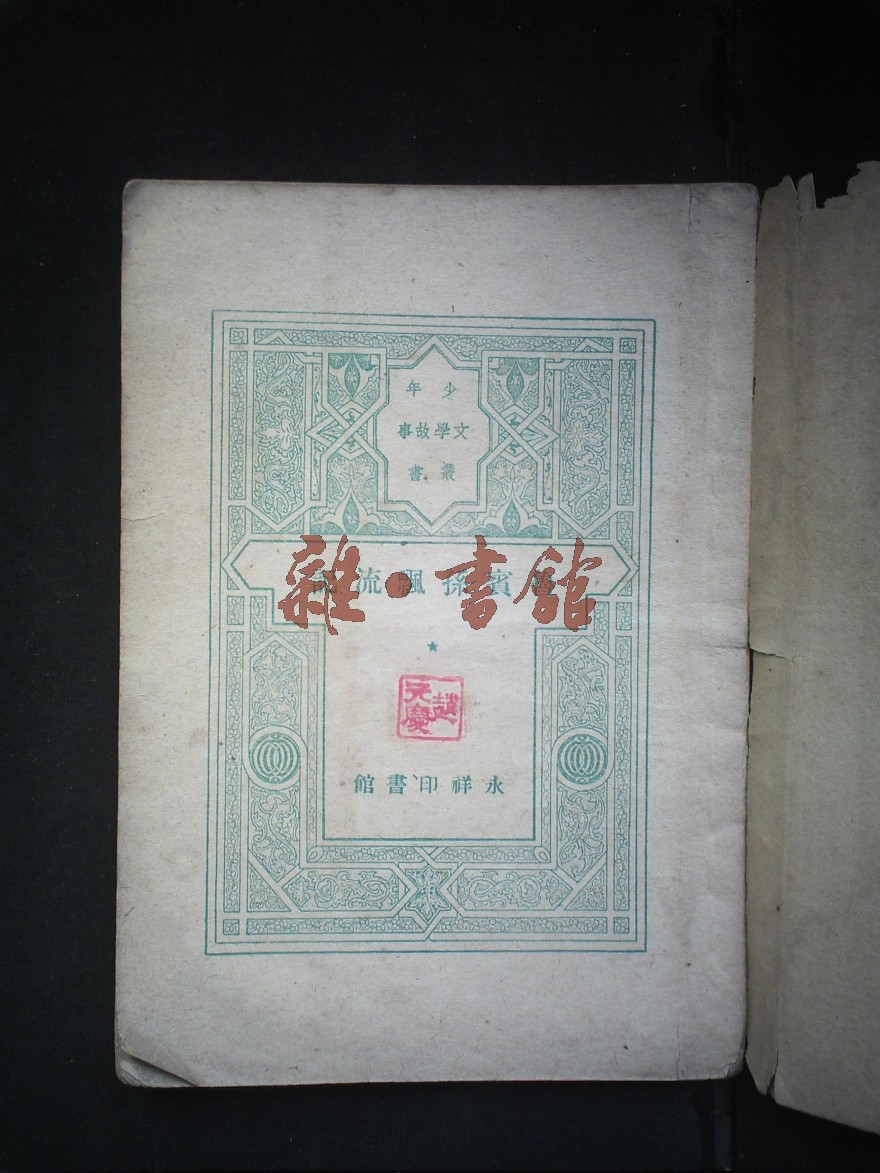 少年
文學故事
叢書
魯賓孫飄流記
雜·書館
趙
元慶
永祥印書館